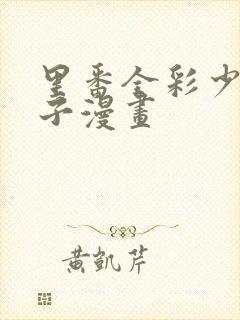 里番全彩少
子漫畫
黃凱芹